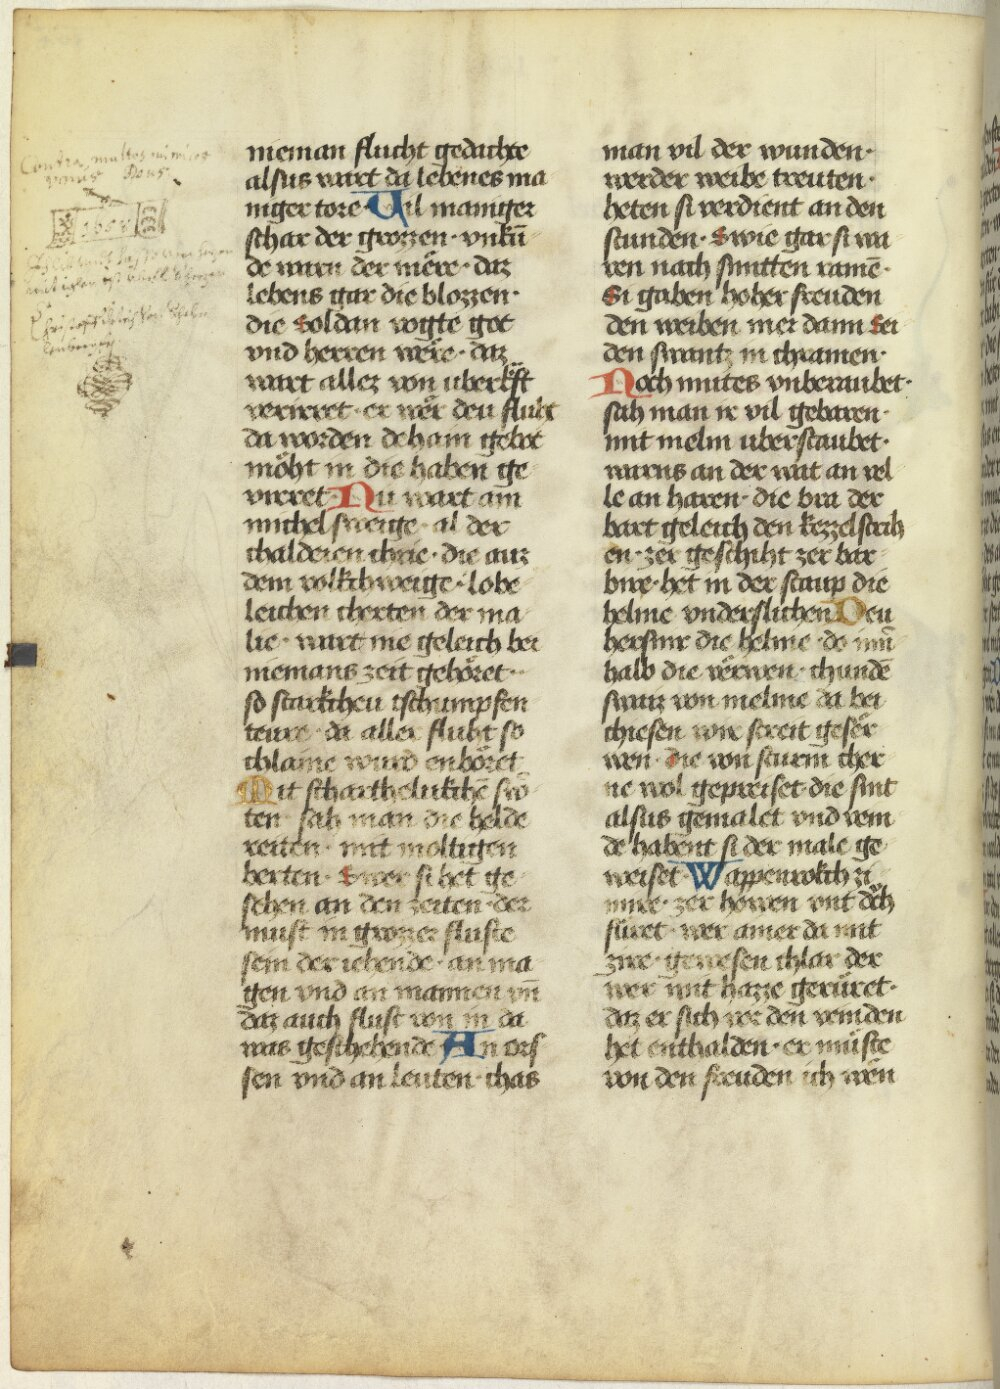 Contra multos inimicos
unus Deus
1658
nieman flucht gedachte
alsus wart da lebenes ma
niger tore · Vil maniger
schar der grozzen · vnkū
de warn der mëre · daz
lebens gar die blozzen ·
die Soldan vogte got
vnd herren wëre · daz
wart allez von uberkft
verirret · er wër deu fluht
da worden dehain gebot
möht in die haben ge
virret · Nu wart ain
michel sweige · al der
thalderien chrie · die auz
dem volkchweige · lobe
leichen cherten der ma
lie · wart nie geleich bei
niemans zeit gehöret ·
so starkcheu tschumpfen
teure · da aller fluht so
chlaine wurd enböret
Mit scharthelukchē swō
ten · sah man die helde
reiten · mit moltigen
berten · Swer si het ge
sehen an den zeiten · der
must in grozzer fluste
sein der iehende · an ma
gen vnd an mannen vn̄
daz auch flust von in da
was geschehende · An ors
sen vnd an leuten · chas
man vil der wunden ·
werder weibe treuten ·
heten si verdient an den
stunden · Swie gar si wa
ren nach smitten ramē ·
Si gaben hoher freuden
den weiben mer dann Sei
den swantz in chramen ·
Noch mutes vnberaubet ·
sah man ir vil gebaren ·
mit melm uberstaubet ·
warns an der wat an vel
le an haren · die bra der
bart geleich den kezzelstrih
en · zer geschiht zer bar
bire · het in der staup die
helme vnderslichen Deu
hersnir die helme · do inn̄
halb die värwen · chundē
swarz von melme da bei
chiesen wir streit geser
wen · die von sturm cher
ne wol gepreiset · die sint
alsus gemalet vnd vem
de habent si der male ge
weiset · Wappenrokch zi
mire · zer howen vnt dch
füret · wer ainer da mit
zire · gewesen chlar der
wer mit hazze gerüret ·
daz er sich vor den veinden
het enthalden · er müste
von den freuden ich wen